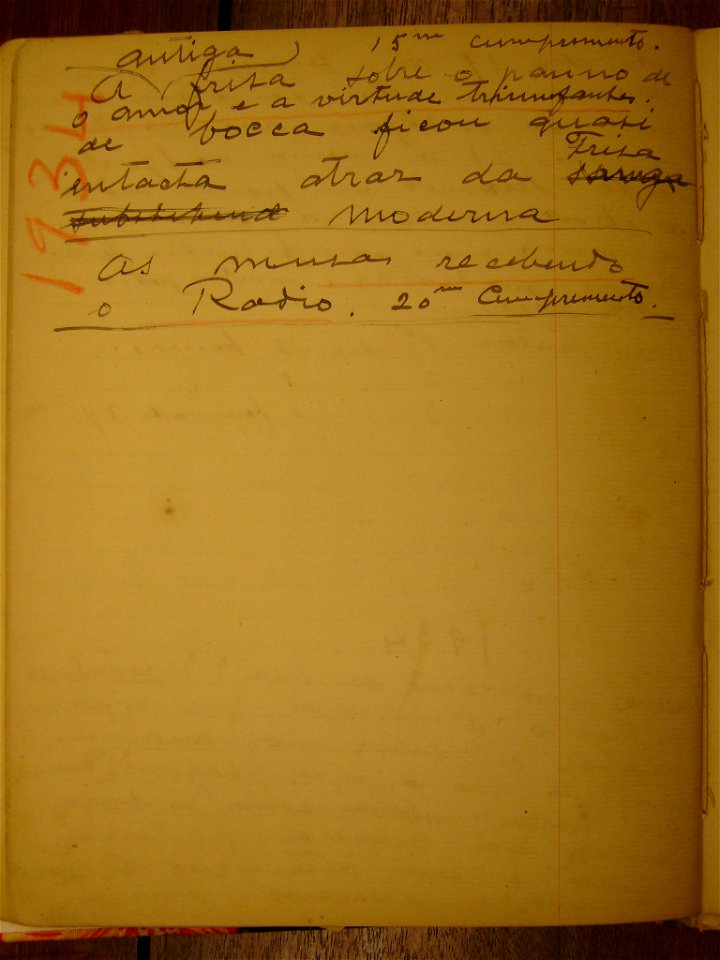 antiga) 15m cumpromento.
A frisa sobre o panno de
o amor e a virtude triumfantes.
de bocca ficou quasi
Frisa
intacta atraz da
moderna
As musas recebendo
o Radio. 20m Cumpremento.
1934